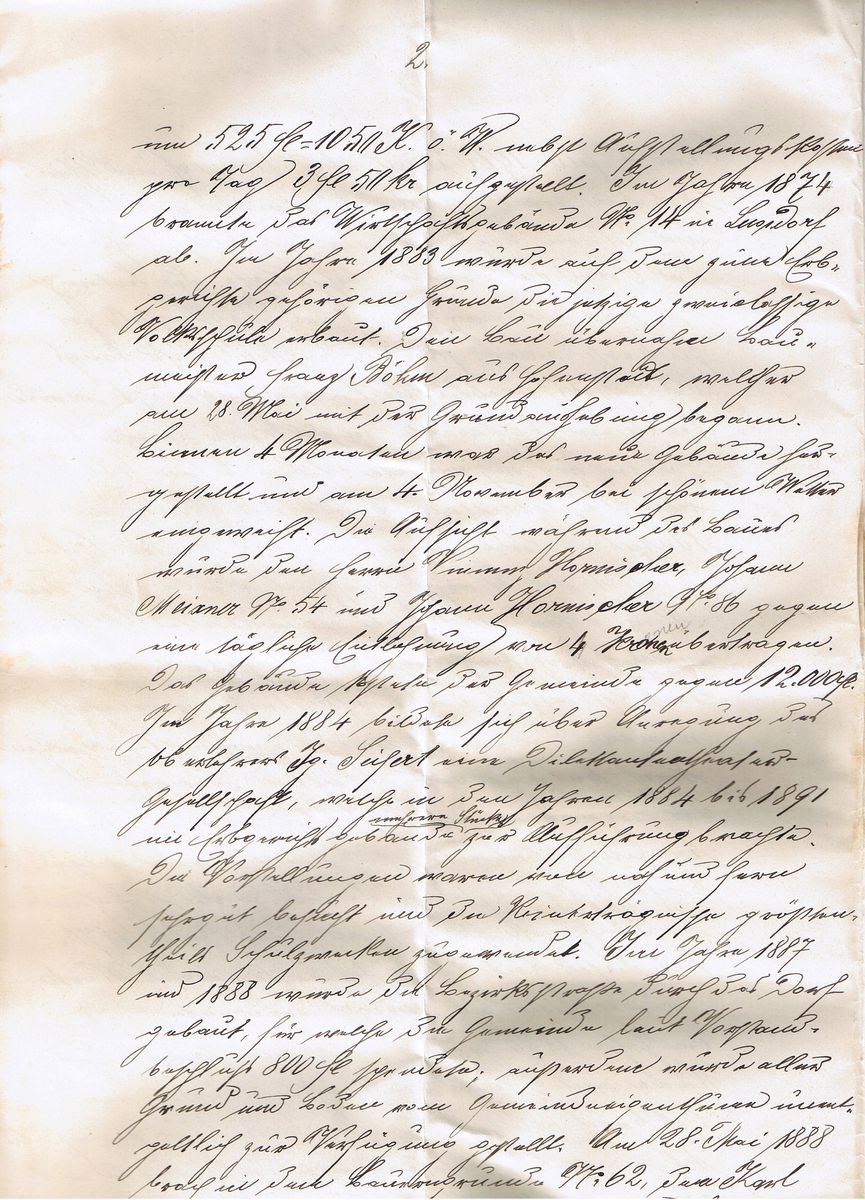 2.
um 525 fl = 1050 K. ö. W. nebst Aufstellungskosten
pro Tag 3 fl 50 kr. aufgestellt. Im Jahre 1874
brannte das Wirtschaftsgebäude No. 14 in Lußdorf
ab. Im Jahre 1883 wurde auf dem zum Erb-
gerichte gehörigen Grunde die jetzige zweiclassige
Volksschule erbaut. Den Bau übernahm Bau-
meister Franz Böhm aus Hohenstadt, welcher
am 28. Mai mit der Grundaushebung begann.
Binnen 4 Monaten war das neue Gebäude her-
gestellt und am 4. November bei schönem Wetter
eingeweiht. Die Aufsicht während des Baues
wurde den Herrn Vinzenz Hornischer, Johann
Meixner No. 54 und Johann Hornischer No. 86 gegen
eine tägliche Entlohnung von 4 Kronen übertragen.
Das Gebäude kostete der Gemeinde gegen 12.000 fl.
Im Jahre 1884 bildete sich über Anregung des
Oberlehrers Ig. Seifert eine Dilettantentheater-
Gesellschaft, welche in den Jahren 1884 bis 1891
im Erbgerichtsgebäude mehrere Stücke zur Aufführung brachte.
Die Vorstellungen waren von nah und fern
sehr gut besucht und die Reinerträgnisse größten-
theils Schulzwecken zugewendet. Im Jahre 1887
und 1888 wurde die Bezirksstraße durch das Dorf
gebaut, für welche die Gemeinde laut Vorstand-
beschluß 800 fl spendete; außerdem wurde aller
Grund und Boden vom Gemeindeeigenthume unent-
geltlich zur Verfügung gestellt. Am 28. Mai 1888
brach in dem Bauerngrunde No. 62, dem Karl